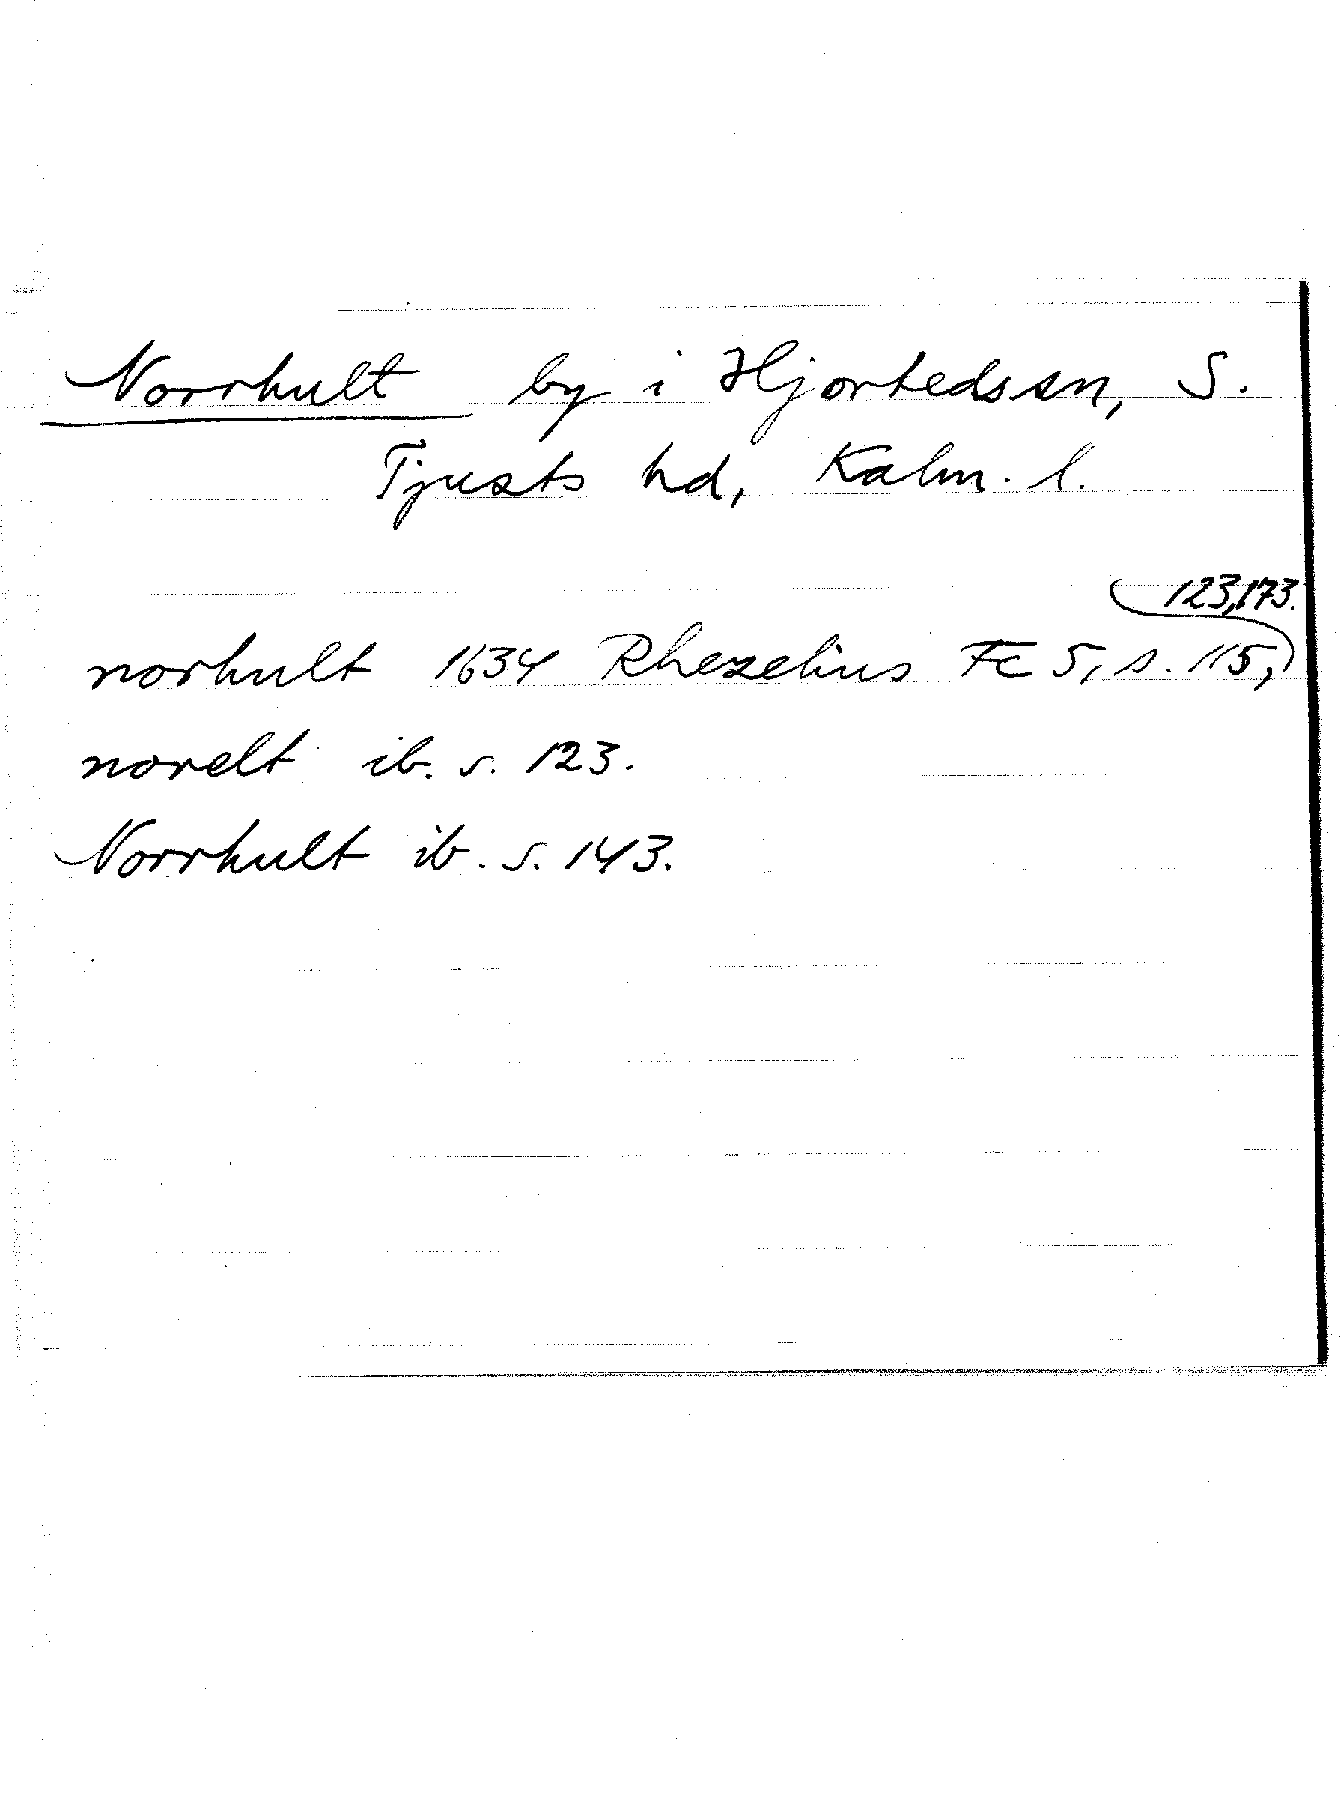 Norrhult by i Hjortedssn, S.
Tjusts hd, Kalm. l.
norhult 1634 Rhezelius Fc 5, s. 115, 123, 173.
norelt ib. s. 123.
Norrhult ib. s. 143.